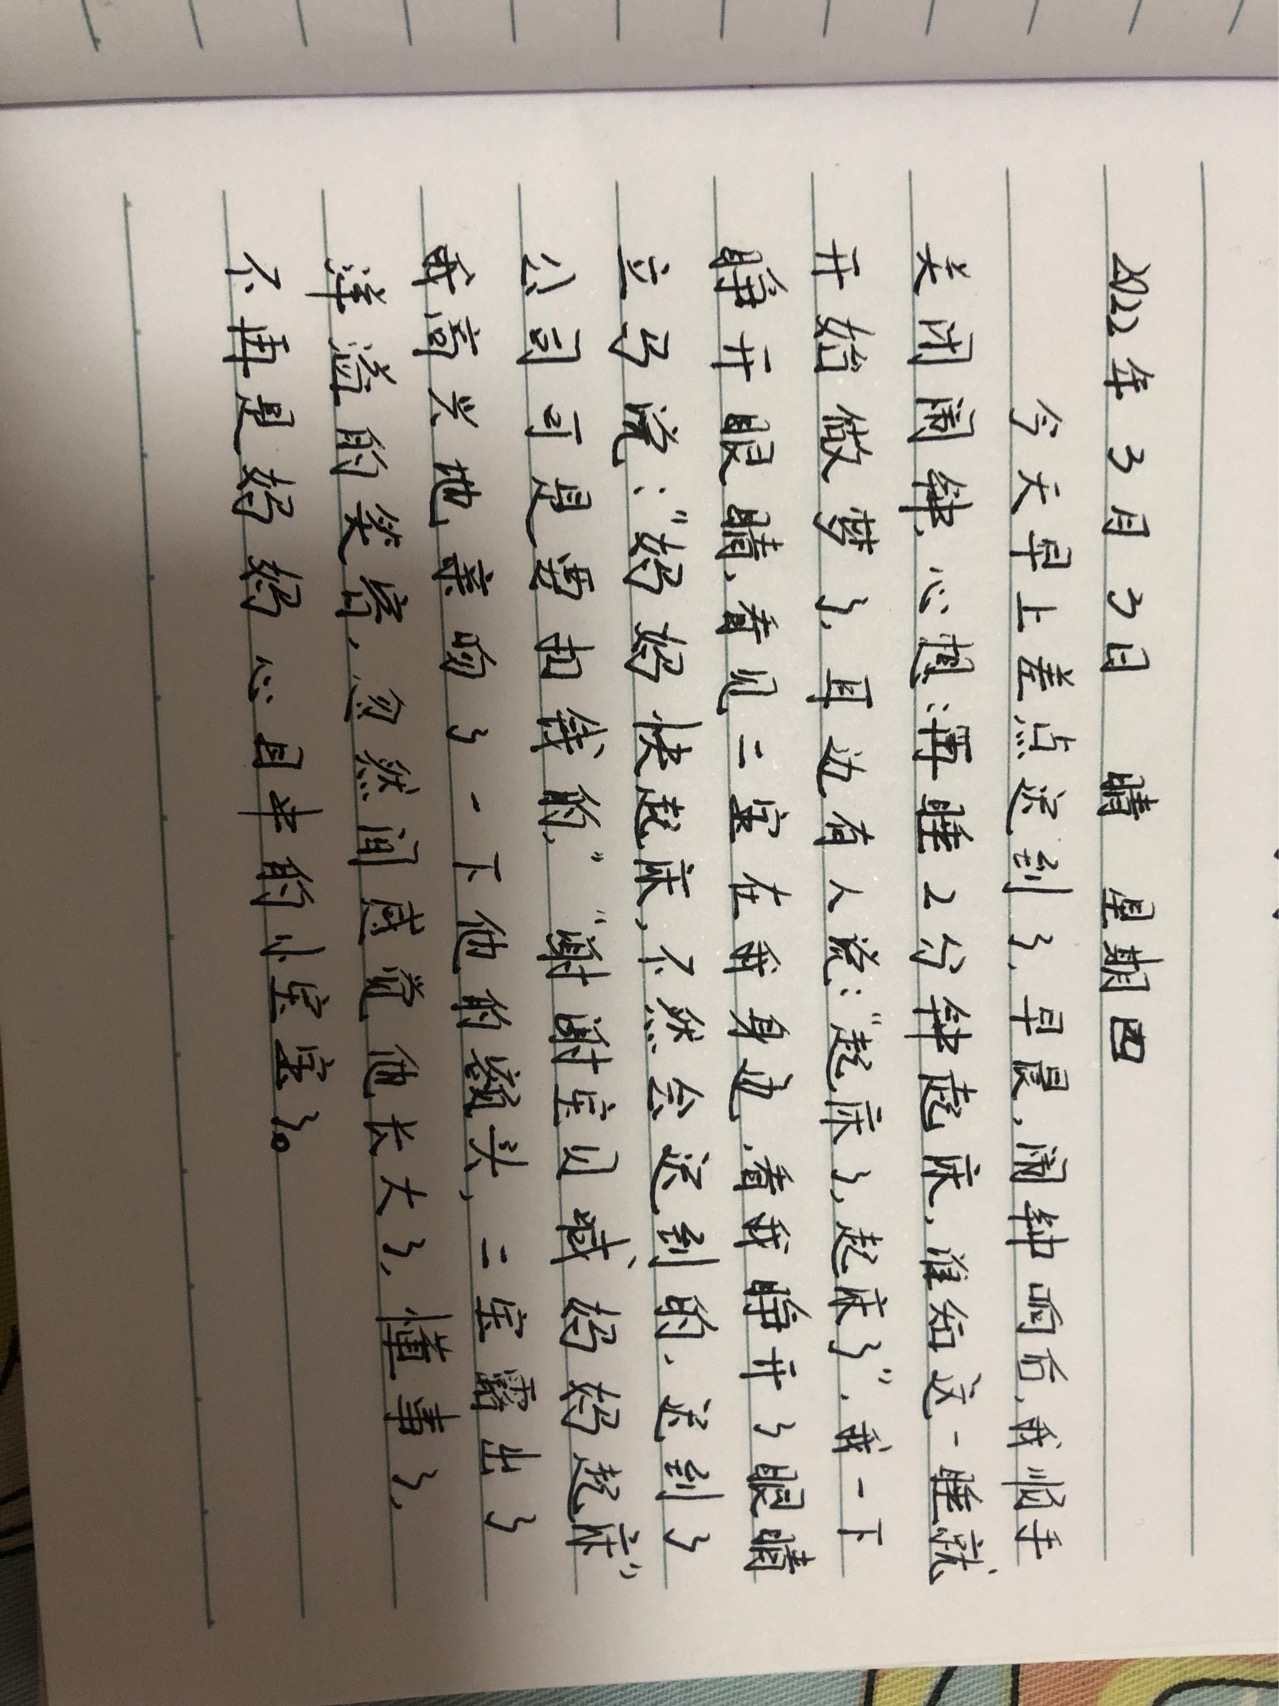 2022年3月3日 晴 星期四
今天早上差点迟到了,早晨,闹钟响后,我顺手
关闭闹钟,心想:再睡2分钟起床,谁知这一睡就
开始做梦了,耳边有人说:"起床了,起床了",我一下
睁开眼睛,看见二宝在我身边,看我睁开了眼睛
立马说:"妈妈快起床,不然会迟到的,迟到了
公司可是要扣钱的,""谢谢宝贝喊妈妈起床"
我高兴地亲吻了一下他的额头,二宝露出了
洋溢的笑容,忽然间感觉他长大了,懂事了,
不再是妈妈心目中的小宝宝了。